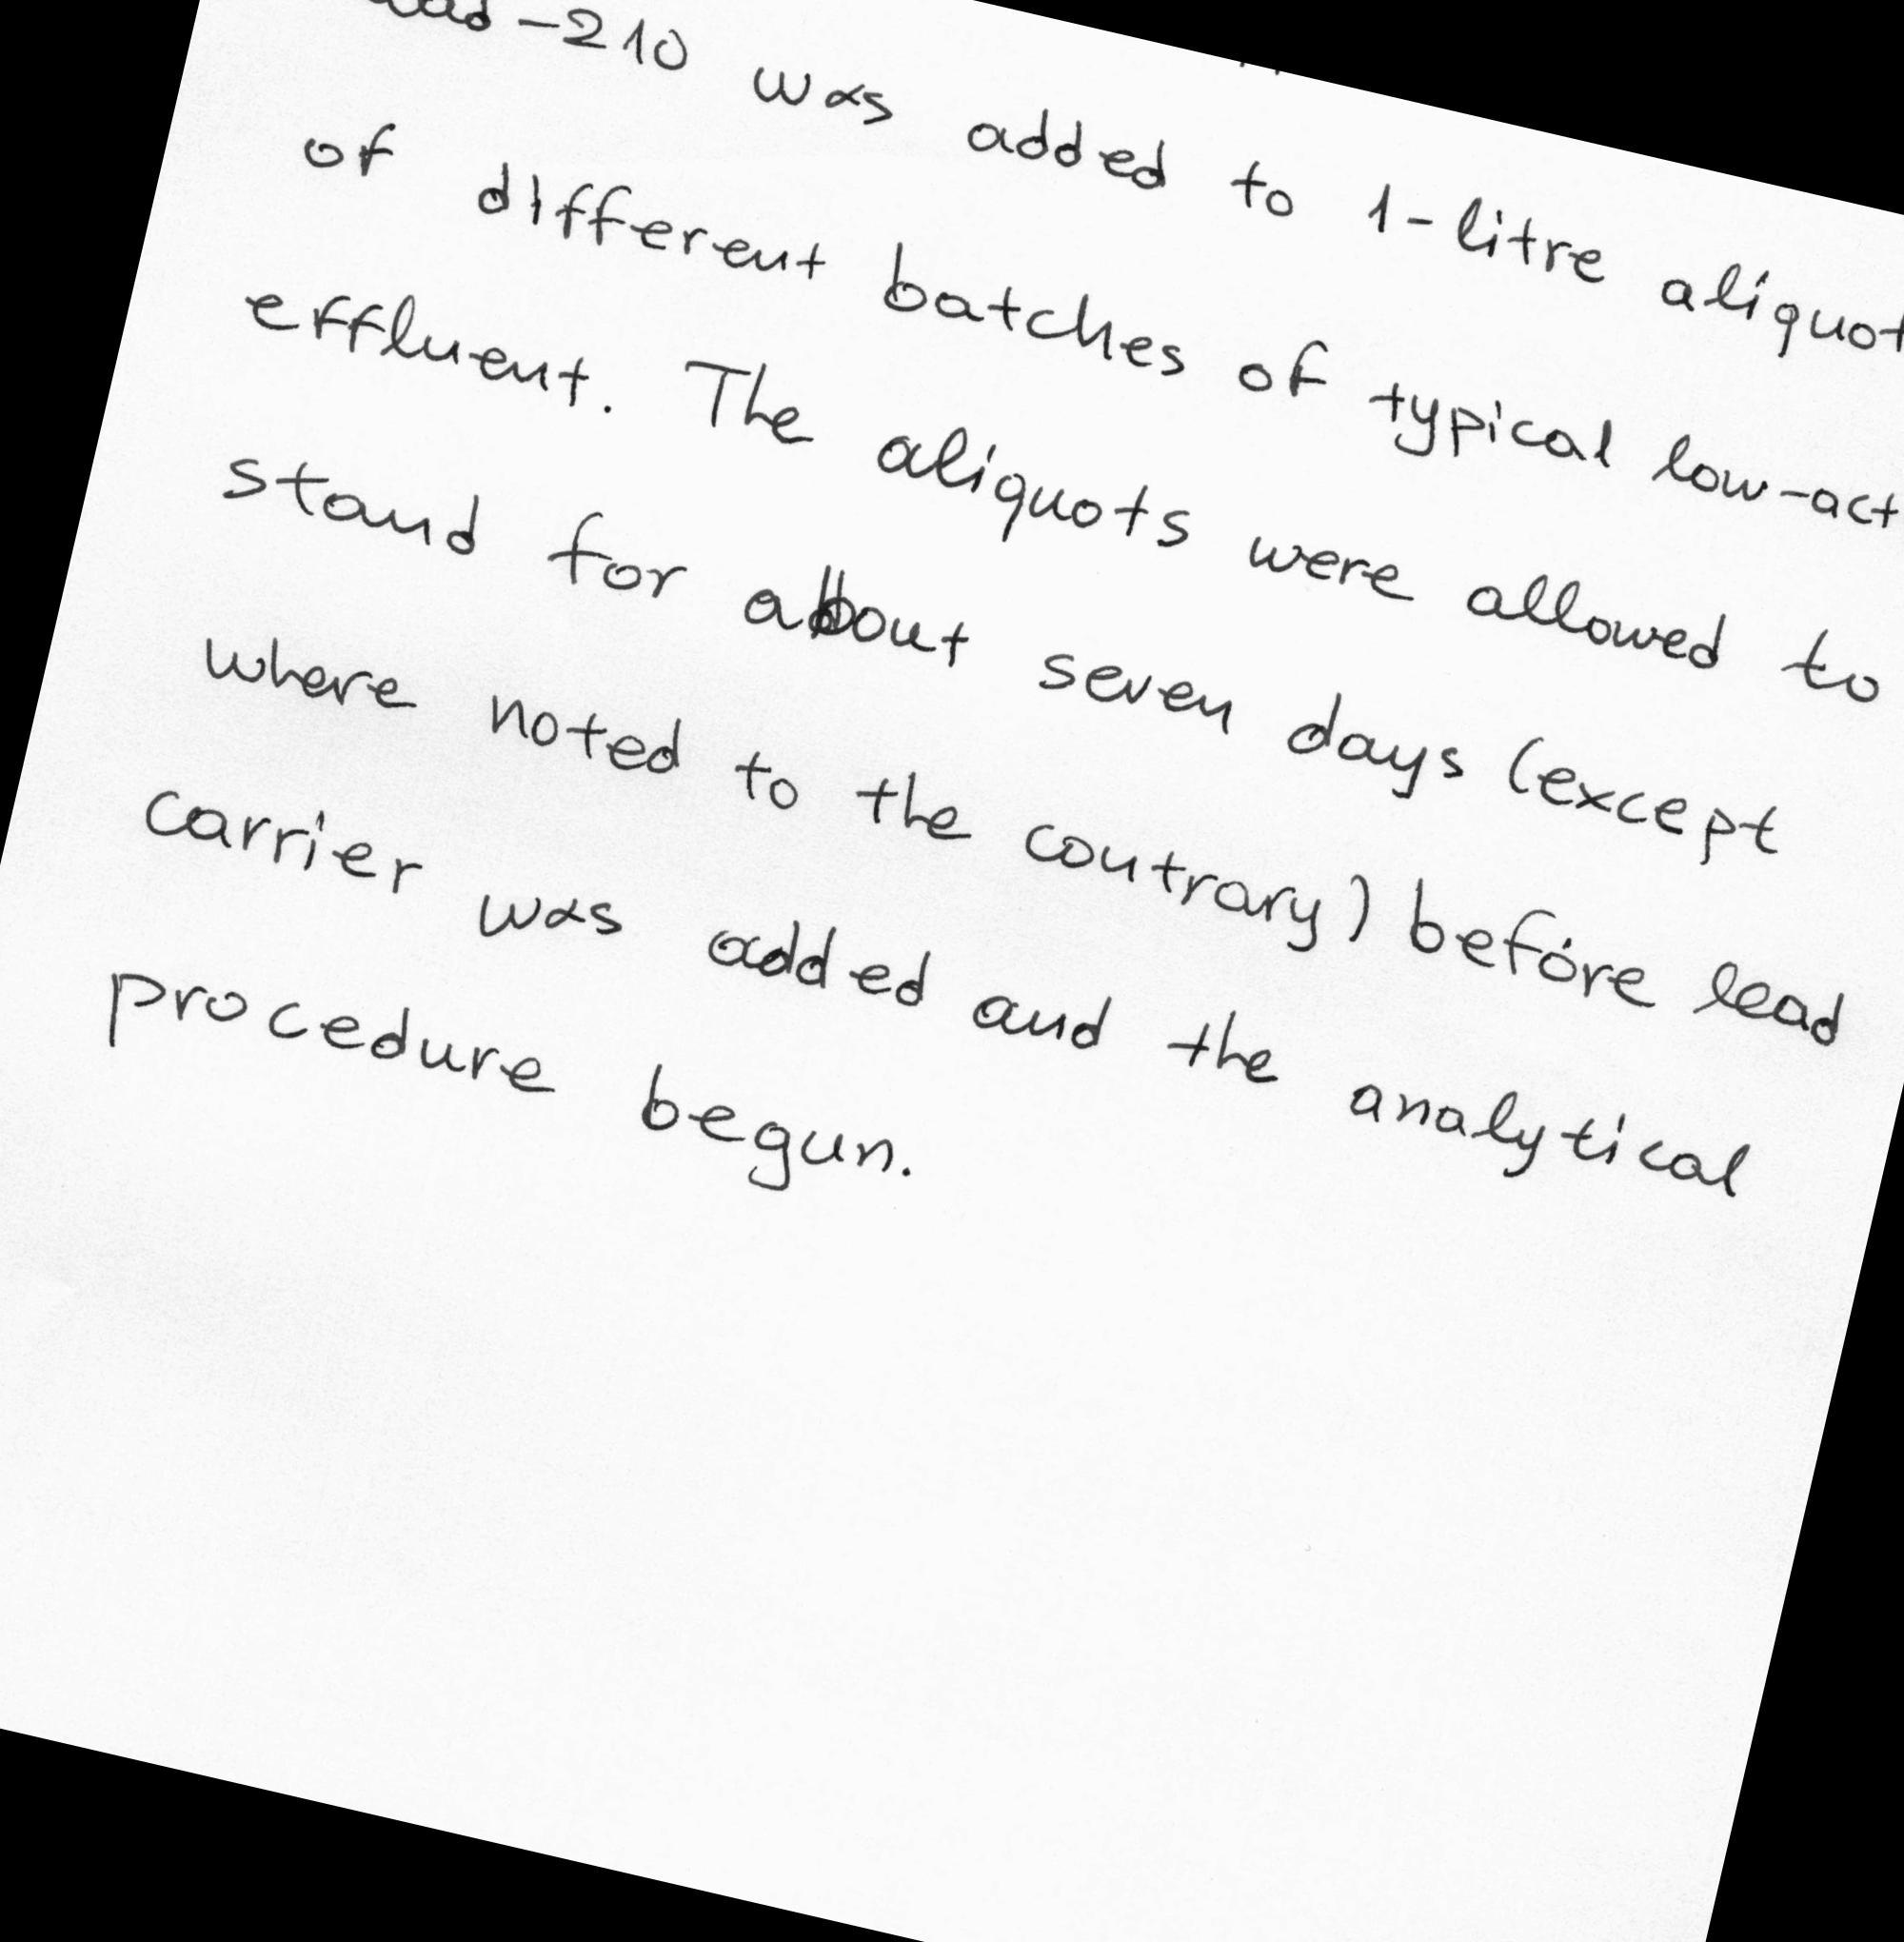 -210 was added to 1-litre aliquot
of different batches of typical low-act
effluent. The aliquots were allowed to
stand for about seven days (except
where noted to the contrary) before lead
carrier was added and the analytical
procedure begun.